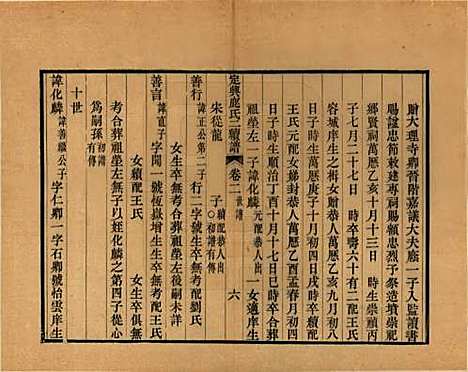 贈大理寺卿晉階嘉議大夫廕一子入監讀書
賜諡忠節敕建專祠賜額彰烈予祭造墳崇祀
鄉賢祠萬歷乙亥十月十三日 時生崇禎丙
子七月二十七日 時卒壽六十有二配王氏
容城庠生之楫女贈恭人萬歷 年 月
時生萬歷庚子十月初四日戌時卒續配
王氏元配女娣封恭人萬歷乙酉孟春月初四
日 時生順治丁酉十月十七日巳時卒合葬
祖塋左一子諱化麟元配恭人出一女適庠生
定興鹿氏二續譜 卷二 世譜 六
朱從龍 續配恭人出 子 初譜有傳
善行 諱正公第二子 行二字號生卒無考配劉氏
女生卒無考合葬祖塋左後嗣未詳
善言 諱直子 字聞一號恆嶽增生生卒無考配王氏
女續配王氏 女生卒俱無
考合葬祖塋左無子以姪化麟之第四子從心
爲嗣孫 初譜有傳
十世
諱化麟 諱善繼公子 字仁卿一字石卿號怡雲庠生